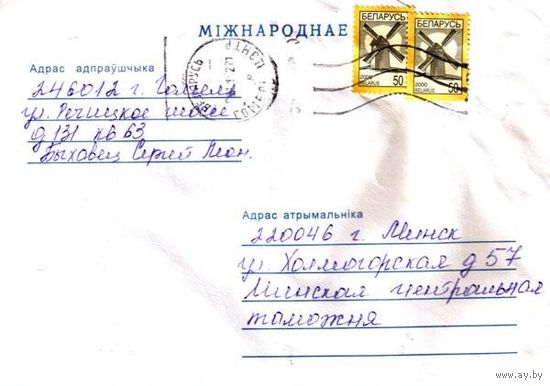 МІЖНАРОДНАЕ
БЕЛАРУСЬ
2000
BELARUS
50
БЕЛАРУСЬ
2000
BELARUS
50
Адрас адпраўшчыка
246012 г. Гомель
ул. Речицкое шоссе
д 131 кв 63
Быховец Сергей Леон.
Адрас атрымальніка
220046 г. Минск
ул. Холмогорская д 57
Минская центральная
таможня
www.ay.by